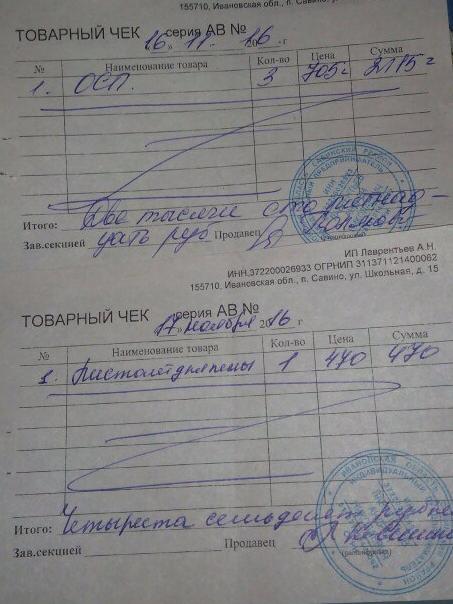 155710, Ивановская обл., п. Савино,
ТОВАРНЫЙ ЧЕК серия АВ №
16 » 11. 2016 г
№ Наименование товара Кол-во Цена Сумма
1. ОСП. 3 705 2115
Итого: Две тысячи сто пятнад-
Зав.секцией цать руб Продавец
ИП Лаврентьев А.Н.
ИНН.372200026933 ОГРНИП 311371121400062
155710, Ивановская обл., п. Савино, ул. Школьная, д. 15
ТОВАРНЫЙ ЧЕК серия АВ №
17 » ноября 2016 г
№ Наименование товара Кол-во Цена Сумма
1. Пистолет для пены 1 470 470
Итого: Четыреста семьдесят
Зав.секцией Продавец
(расшифровка)